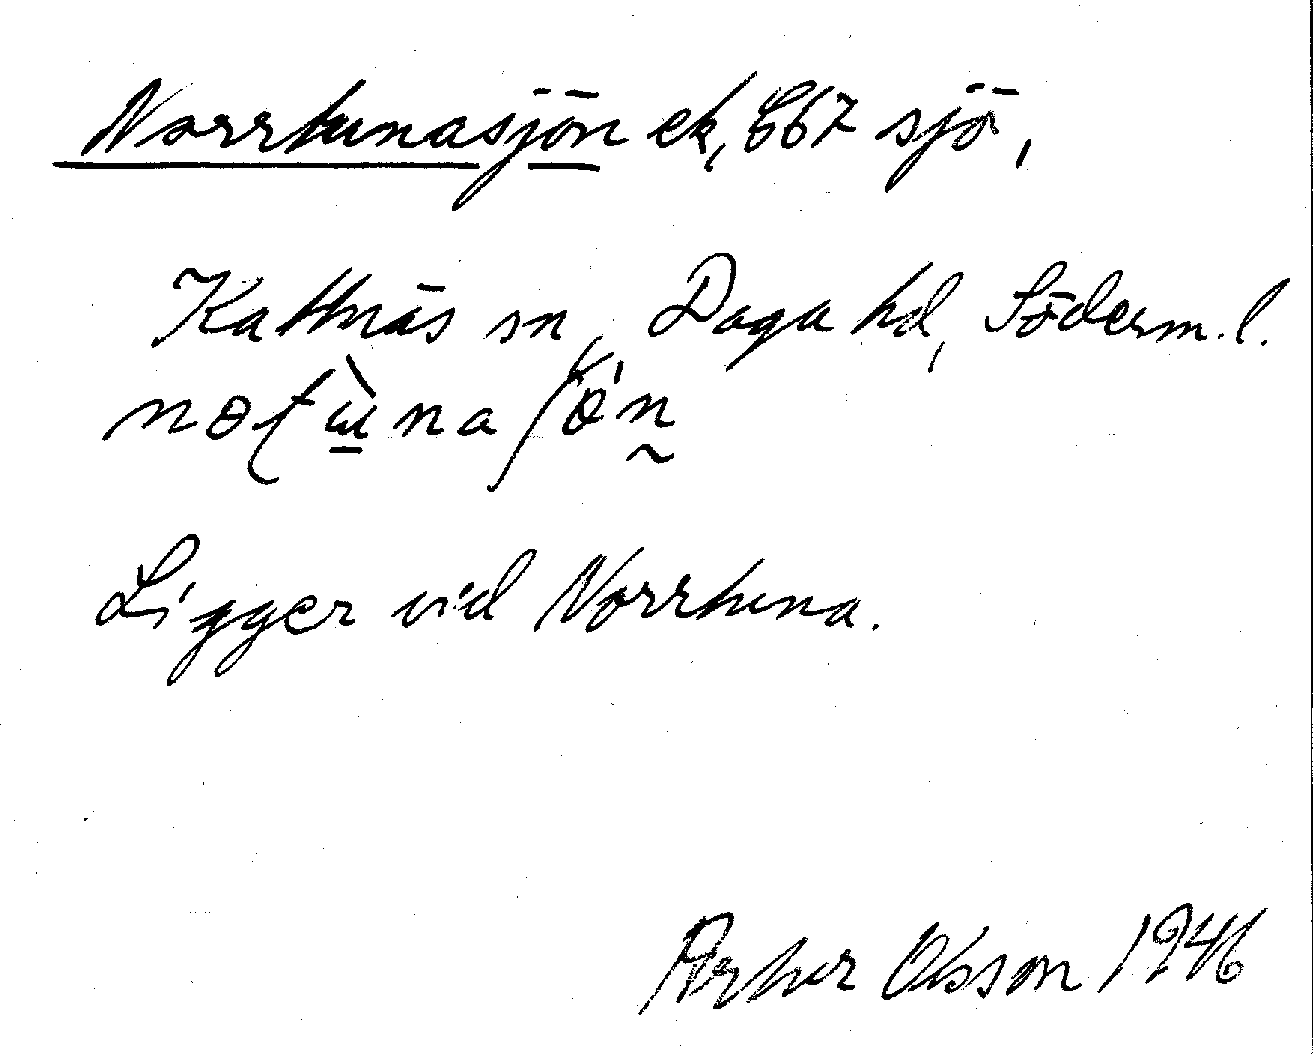 Norrtunasjön ek, 667 sjö,
Kattnäs sn, Daga hd, Söderm. l.
Ligger vid Norrtuna.
Artur Olsson 1946